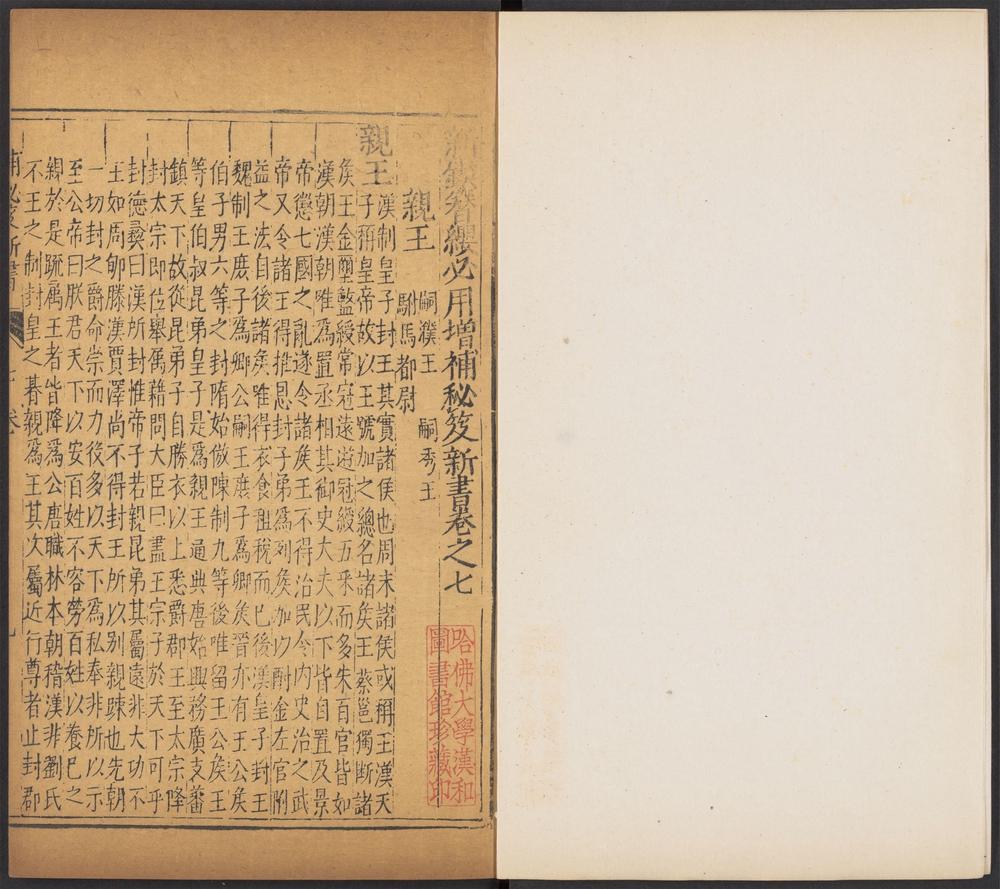 新鐫簪纓必用增補秘笈新書卷之七
親王
嗣濮王 嗣秀王
駙馬都尉
親王
漢制皇子封王其實諸侯也周末諸侯或稱王漢天
子稱皇帝故以王號加之總名諸矦王 蔡邕獨斷諸
矦王金璽盭綬常冠遠遊冠綬五采而多朱百官皆如
漢朝漢朝唯為置丞相其御史大夫以下皆自置及景
帝懲七國之亂遂令諸矦王不得治民令內史治之武
帝又令諸王得推恩封子弟為列矦加以酎金左官附
益之法自後諸矦唯得衣食租稅而已後漢皇子封王
魏制王庶子為鄉公嗣王庶子為鄉矦晉亦有王公矦
伯子男六等之封隋始倣陳制九等後唯留王公矦王
等皇伯叔昆弟皇子是為親王通典唐始興務廣支蕃
鎮天下故從昆弟子自勝衣以上悉爵郡王至太宗降
封太宗即位舉属藉問大臣曰盡王宗子於天下可乎
封德彝曰漢所封惟帝子若親昆弟其屬遠非大功不
王如周郇滕漢賈澤尚不得封王所以別親踈也先朝
一切封之爵命崇而力後多以天下為私奉非所以示
至公帝曰朕君天下以安百姓不容勞百姓以養己之
親於是踈属王者皆降為公唐職林本朝稽漢非劉氏
不王之制封皇之朞親為王其次屬近行尊者止封郡
哈佛大學漢和
圖書館珍藏印